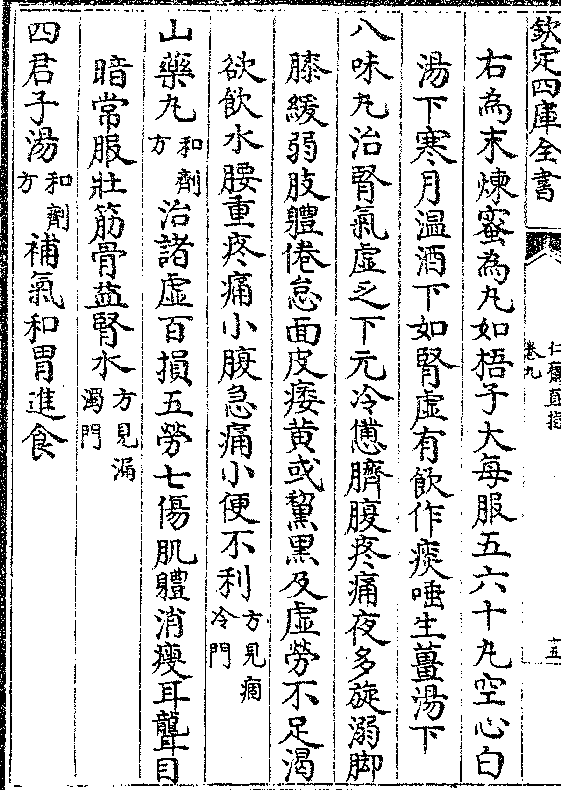 欽定四庫全書
仁齋直指
卷九
十五
右為末煉蜜為丸如梧子大每服五六十丸空心白
湯下寒月溫酒下如腎虛有飲作痰唾生薑湯下
八味丸治腎氣虛乏下元冷憊臍腹疼痛夜多旋溺脚
膝緩弱肢體倦怠面皮痿黃或黧黑及虛勞不足渴
欲飲水腰重疼痛小腹急痛小便不利方見痼冷門
山藥丸和劑方治諸虛百損五勞七傷肌體消瘦耳聾目
暗常服壯筋骨益腎水方見漏濁門
四君子湯和劑方補氣和胃進食